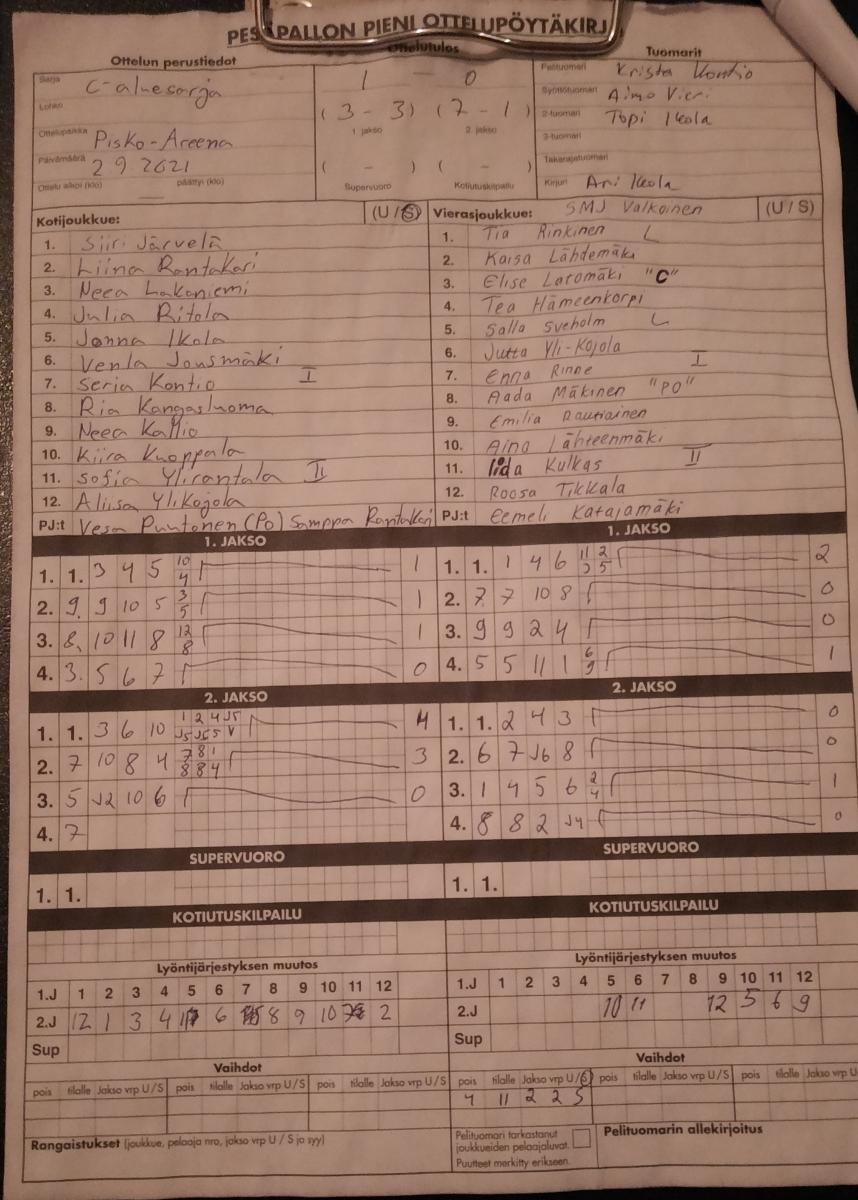 PESÄPALLON PIENI OTTELUPÖYTÄKIRJA
Ottelun perustiedot
Sarja C-aluesarja
Lohko
Ottelupaikka Pisko-Areena
Päivämäärä 2 9 2021
Ottelu alkoi (klo) päättyi (klo)
Ottelutulos
1 - 0
(3 - 3) (7 - 1)
1. jakso 2. jakso
( - ) ( - )
Supervuoro Kotiutuskilpailu
Tuomarit
Pelituomari Krista Kontio
Syöttötuomari Aimo Vieri
2-tuomari Topi Ikola
3-tuomari
Takarajatuomari
Kirjuri Ari Ikola
Kotijoukkue: (U / S)
1. Siiri Järvelä
2. Liina Rantakari
3. Neea Lakaniemi
4. Julia Ritola
5. Jonna Ikola
6. Venla Jousmäki
7. Serja Kontio I
8. Ria Kangasluoma
9. Neea Kallio
10. Kiira Knoppala
11. Sofia Ylirantala II
12. Aliisa Ylikojola
PJ:t Vesa Puutonen (Po) Samppa Rantakari
Vierasjoukkue: SMJ Valkoinen (U / S)
1. Tia Rinkinen L
2. Kaisa Lähdemäki
3. Elise Latomäki "C"
4. Tea Hämeenkorpi
5. Salla Sveholm L
6. Jutta Yli-Kojola
7. Enna Rinne I
8. Aada Mäkinen "PO"
9. Emilia Rautiainen
10. Aino Lähteenmäki
11. Iida Kulkas II
12. Roosa Tikkala
PJ:t Eemeli Katajamäki
1. JAKSO
1. 1. 3 4 5 10 4 1
2. 9. 9 10 5 3 5 1
3. 8. 10 11 8 12 8 1
4. 3. 5 6 7 0
2. JAKSO
1. 1. 3 6 10 1 2 4 J5 J5 J5 5 V 4
2. 7 10 8 4 7 8 1 8 8 4 3
3. 5 J2 10 6 0
4. 7
SUPERVUORO
1. 1.
KOTIUTUSKILPAILU
1. JAKSO
1. 1. 1 4 6 11 2 3 5 2
2. 7. 7 10 8 0
3. 9 9 2 4 0
4. 5 5 11 1 6 9 1
2. JAKSO
1. 1. 2 4 3 0
2. 6 7 J6 8 0
3. 1 4 5 6 2 4 1
4. 8 8 2 J4 0
SUPERVUORO
1. 1.
KOTIUTUSKILPAILU
Lyöntijärjestyksen muutos
1.J 1 2 3 4 5 6 7 8 9 10 11 12
2.J 12 1 3 4 6 8 9 10 2
Sup
Vaihdot
pois tilalle Jakso vrp U / S pois tilalle Jakso vrp U / S pois tilalle Jakso vrp U / S
Rangaistukset (joukkue, pelaaja nro, jakso vrp U / S ja syy)
Lyöntijärjestyksen muutos
1.J 1 2 3 4 5 6 7 8 9 10 11 12
2.J 10 11 12 5 6 9
Sup
Vaihdot
pois tilalle Jakso vrp U / S pois tilalle Jakso vrp U / S pois tilalle Jakso vrp U
4 11 2 2 S
Pelituomari tarkastanut
joukkueiden pelaajaluvat.
Puutteet merkitty erikseen.
Pelituomarin allekirjoitus